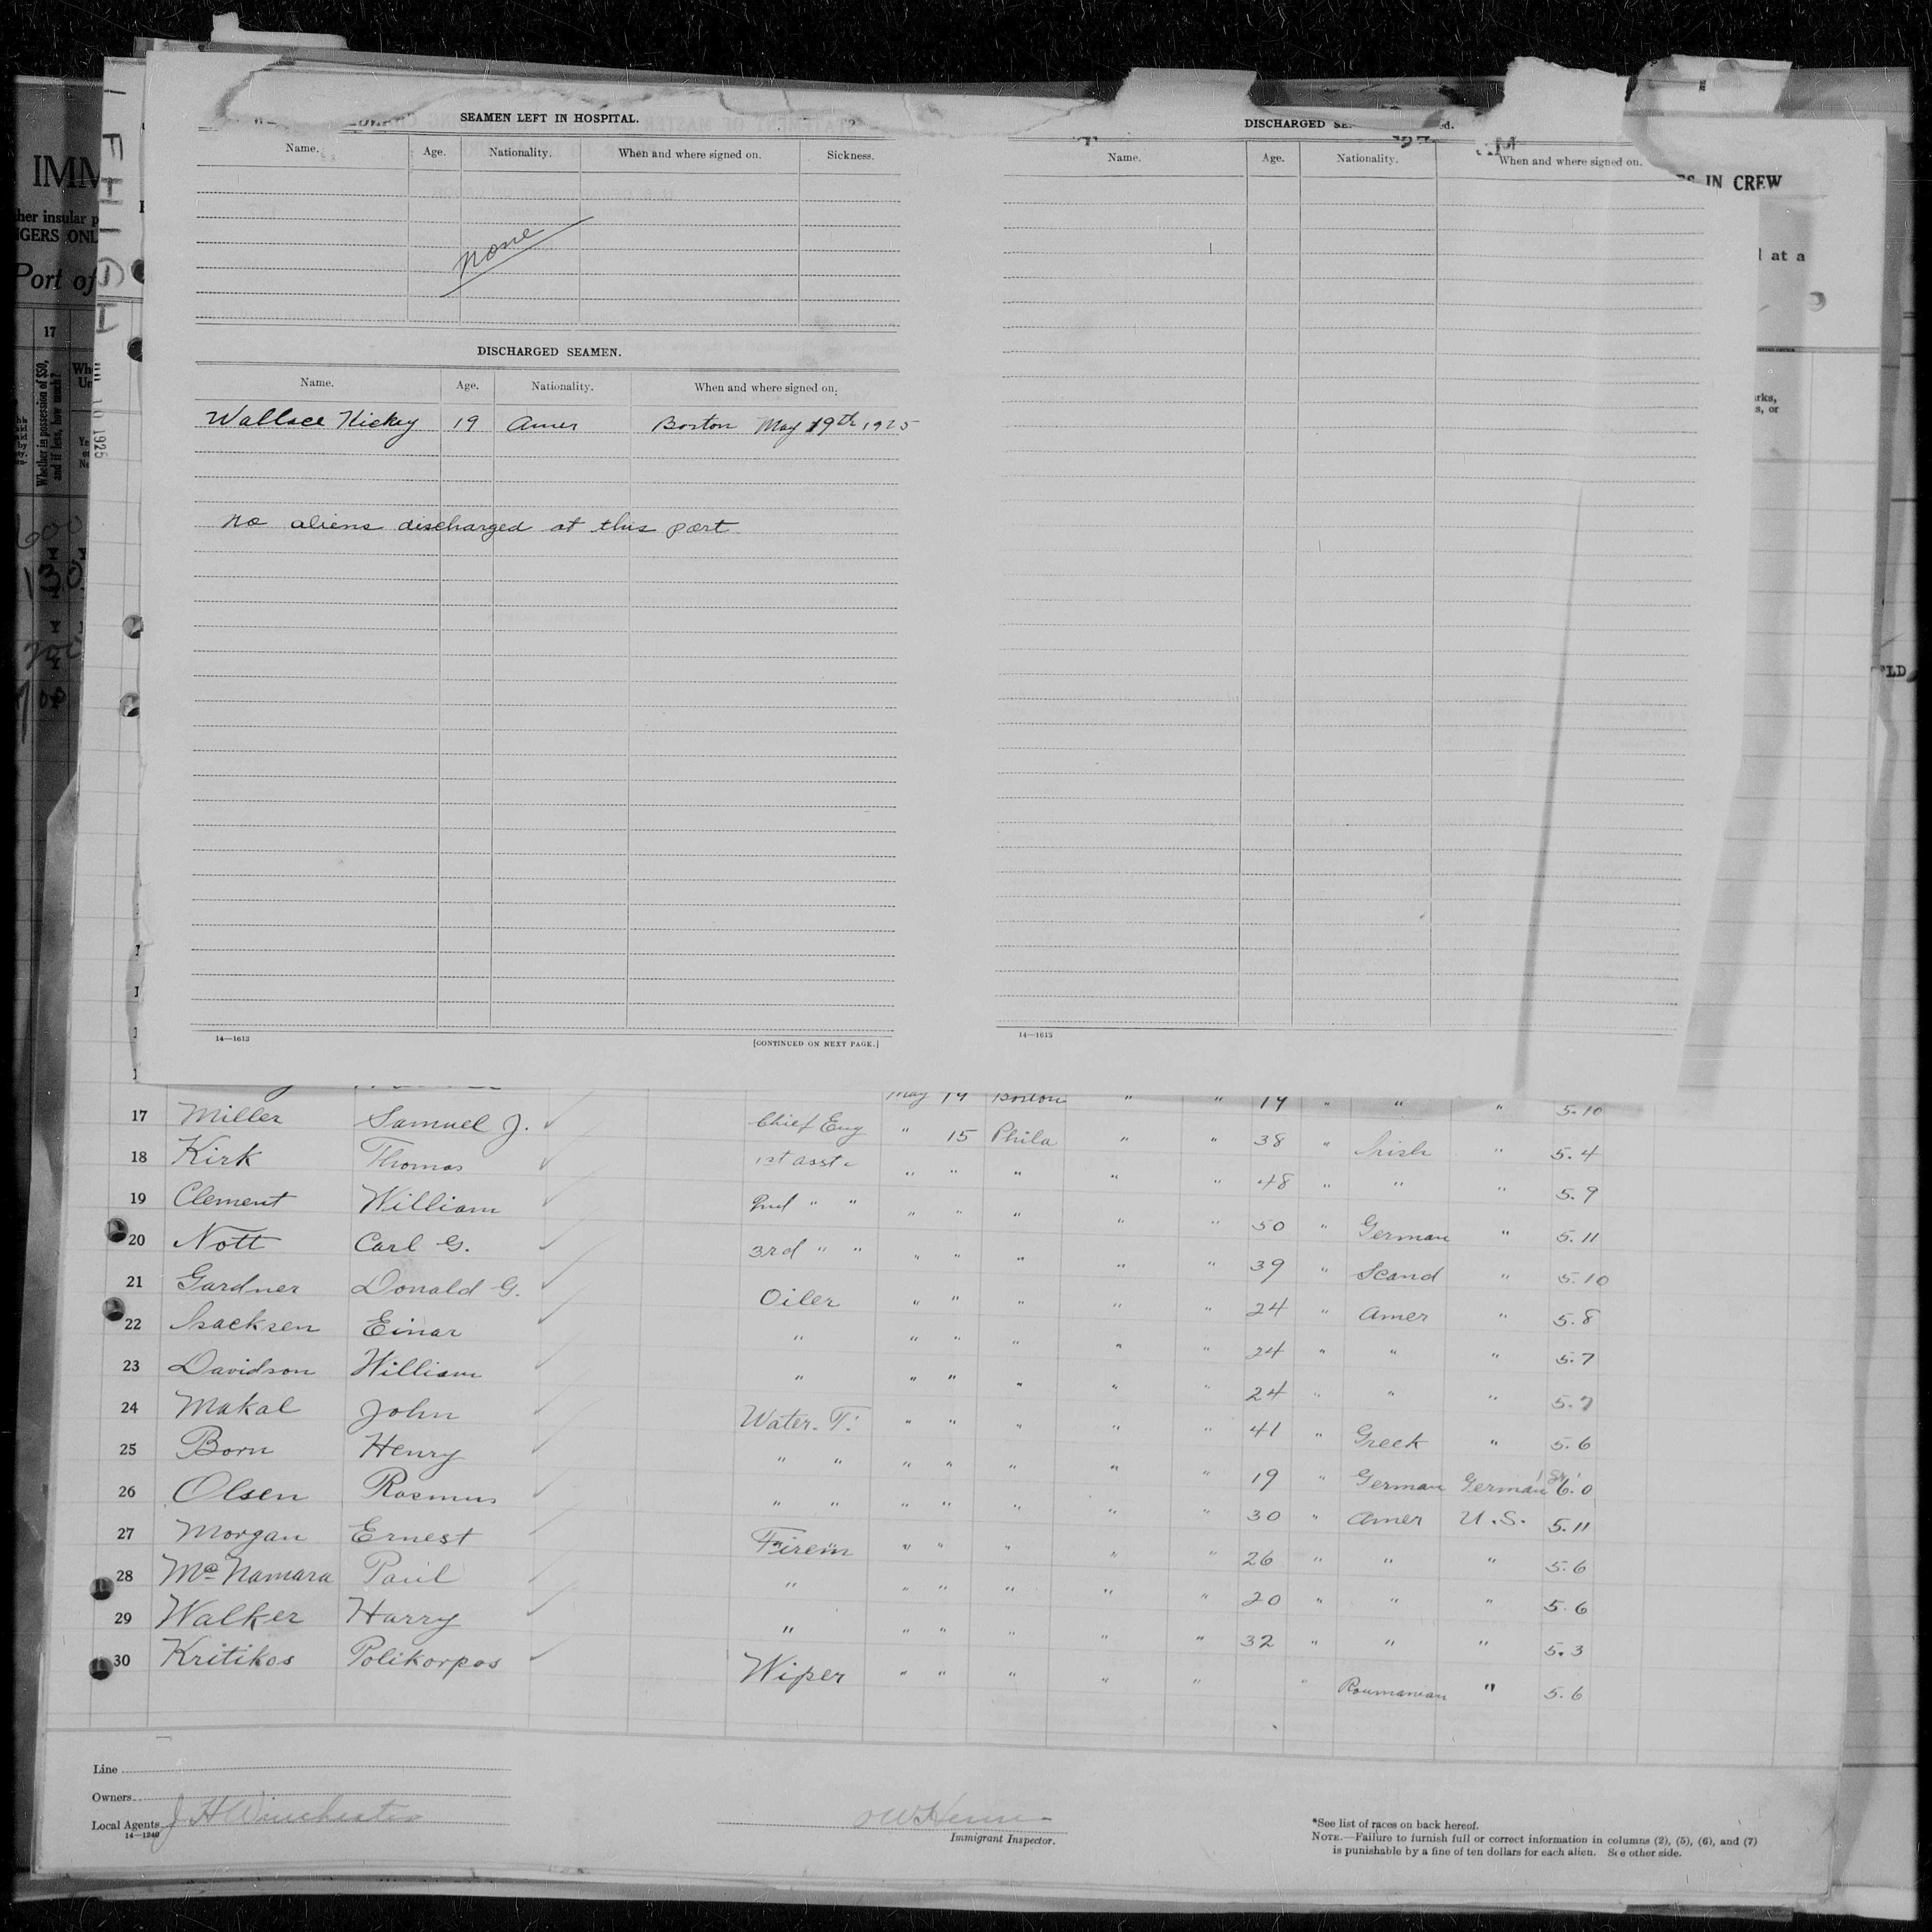 SEAMEN LEFT IN HOSPITAL.
Name. Age. Nationality. When and where signed on. Sickness.
none
DISCHARGED SEAMEN.
Name. Age. Nationality. When and where signed on.
Wallace Hickey 19 Amer Boston May 19th 1925
No aliens discharged at this port
14—1613 [CONTINUED ON NEXT PAGE.]
DISCHARGED
Name. Age. Nationality. When and where signed on.
14—1613
IN CREW
at a
IMM
her insular p
NGERS ONL
Port of
17
Whether in possession of $50, and if less, how much?
10 1925
May 19 Boston " " 19 " " " 5.10
17 Miller Samuel J. Chief Eng " 15 Phila " " 38 " Irish " 5.4
18 Kirk Thomas 1st asst " " " " " 48 " " " 5.9
19 Clement William 2nd " " " " " " " 50 " German " 5.11
20 Nott Carl G. 3rd " " " " " " " 39 " Scand " 5.10
21 Gardner Donald G. Oiler " " " " " 24 " Amer " 5.8
22 Isacksen Einar " " " " " " 24 " " " 5.7
23 Davidson William " " " " " " 24 " " " 5.7
24 Makal John Water. T. " " " " " 41 " Greek " 5.6
25 Born Henry " " " " " " " 19 " German German 6.0
26 Olsen Rasmus " " " " " " " 30 " Amer U.S. 5.11
27 Morgan Ernest Firem " " " " " 26 " " " 5.6
28 McNamara Paul " " " " " " 20 " " " 5.6
29 Walker Harry " " " " " " 32 " " " 5.3
30 Kritikos Polikorpos Wiper " " " " " " Roumanian " 5.6
Line
Owners
Local Agents J H Winchester
14—1240
Immigrant Inspector.
*See list of races on back hereof.
NOTE.—Failure to furnish full or correct information in columns (2), (5), (6), and (7)
is punishable by a fine of ten dollars for each alien. See other side.